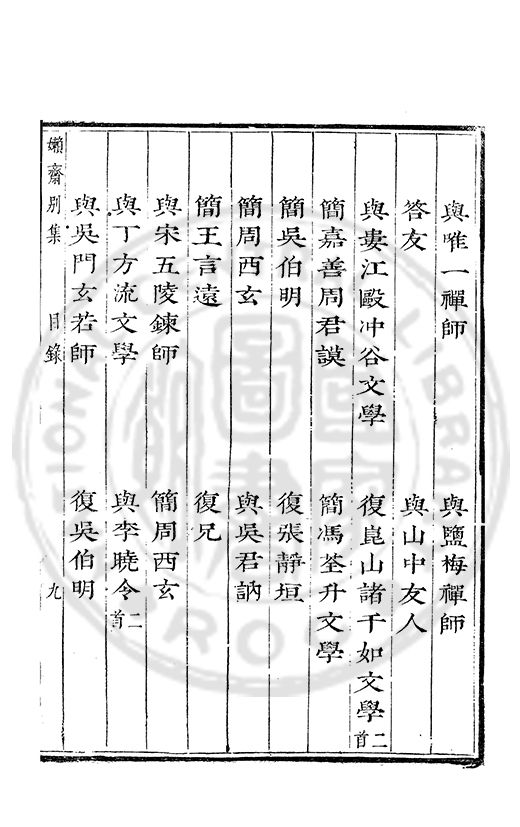 與唯一禪師　與鹽梅禪師
答友　與山中友人
與婁江毆冲谷文學　復崑山諸千如文學二首
簡嘉善周君謨　簡馮荃升文學
簡吳伯明　復張靜垣
簡周西玄　與吳君訥
簡王言遠　復兄
與宋五陵鍊師　簡周西玄
與丁方流文學　與李曉令二首
與吳門玄若師　復吳伯明
嬾齋別集　目錄　九